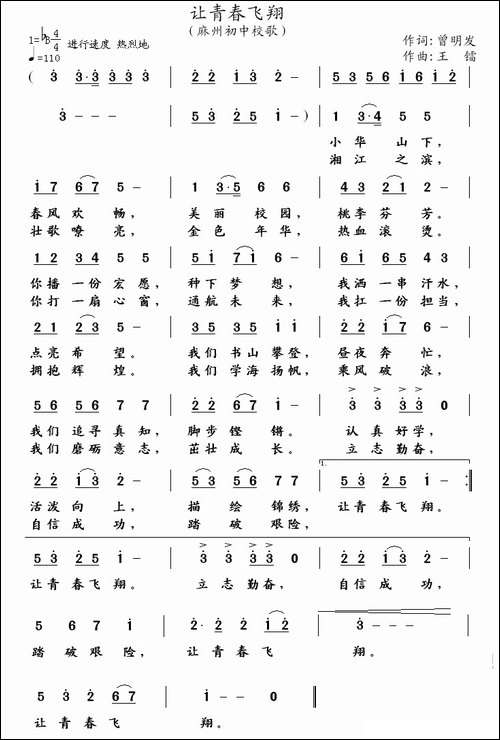 让青春飞翔
（麻州初中校歌）
1=♭B 4/4 进行速度 热烈地 作词:曾明发
♩=110 作曲:王 镭
( 3̇ 3̇·3̇ 3̇ 3̇ 3̇ | 2̇ 2̇ 1̇ 3̇ 2̇ - | 5 3̇ 5 6 1̇ 6 1̇ 2̇ |
3̇ - - - | 5 3̇ 2̇ 5 1̇ - ) | 1 3·4 5 5 |
小 华 山 下，
湘 江 之 滨，
1̇ 7 6 7 5 - | 1 3·5 6 6 | 4 3 2 1 2 - |
春风 欢 畅， 美 丽 校 园， 桃李 芬 芳。
壮歌 嘹 亮， 金 色 年 华， 热血 滚 烫。
1 2 3 4 5 5 | 5 1̇ 7 1̇ 6 - | 6 1̇ 6 5 4 3 |
你播 一份 宏愿， 种下 梦 想， 我洒 一串 汗水，
你打 一扇 心窗， 通航 未 来， 我扛 一份 担当，
2 1 2 3 5 - | 3 5 3 5 1̇ 1̇ | 2̇ 2̇ 1̇ 7 6 - |
点亮 希 望。 我们 书山 攀登， 昼夜 奔 忙，
拥抱 辉 煌。 我们 学海 扬帆， 乘风 破 浪，
5 6 5 6 7 7 | 2̇ 2̇ 6 7 1̇ - | 3̇ 3̇ 3̇ 3̇ 0 |
我们 追寻 真知， 脚步 铿 锵。 认 真 好学，
我们 磨砺 意志， 茁壮 成 长。 立 志 勤奋，
2̇ 2̇ 1̇ 3̇ 2̇ - | 5 3̇ 5 6 7 7 | 1. 5 3̇ 2̇ 5 1̇ - :‖
活泼 向 上， 描 绘 锦绣， 让青春飞 翔。
自信 成 功， 踏 破 艰险，
5 3̇ 2̇ 5 1̇ - | 3̇ 3̇ 3̇ 3̇ 0 | 2̇ 2̇ 1̇ 3̇ 2̇ - |
让青春飞 翔。 立 志 勤奋， 自信 成 功，
5 6 7 1̇ | 2̇· 2̇ 1̇ 2̇ | 3̇ - - - |
踏 破 艰 险， 让 青春 飞 翔。
5 3̇ 2̇ 6 7 | 1̇ - - 0 ‖
让 青 春 飞 翔。